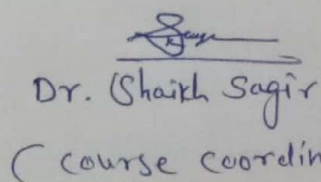 Dr. Shaikh Sagir
( course coordin